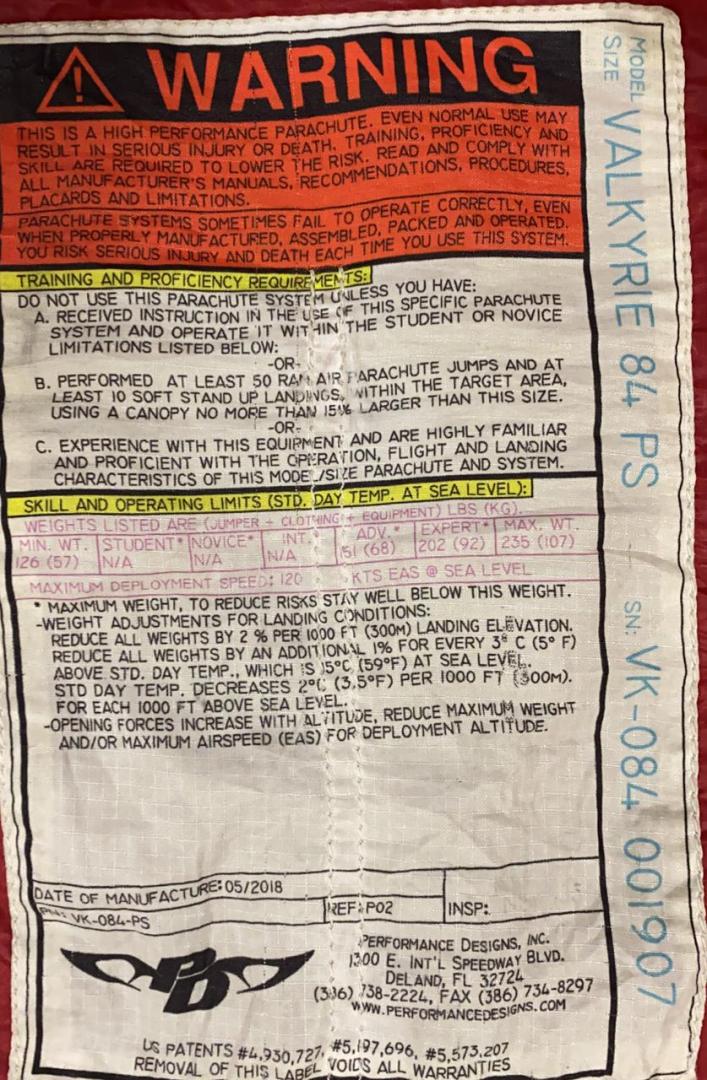 WARNING
THIS IS A HIGH PERFORMANCE PARACHUTE. EVEN NORMAL USE MAY
RESULT IN SERIOUS INJURY OR DEATH. TRAINING, PROFICIENCY AND
SKILL ARE REQUIRED TO LOWER THE RISK. READ AND COMPLY WITH
ALL MANUFACTURER'S MANUALS, RECOMMENDATIONS, PROCEDURES,
PLACARDS AND LIMITATIONS.
PARACHUTE SYSTEMS SOMETIMES FAIL TO OPERATE CORRECTLY, EVEN
WHEN PROPERLY MANUFACTURED, ASSEMBLED, PACKED AND OPERATED.
YOU RISK SERIOUS INJURY AND DEATH EACH TIME YOU USE THIS SYSTEM.
TRAINING AND PROFICIENCY REQUIREMENTS:
DO NOT USE THIS PARACHUTE SYSTEM UNLESS YOU HAVE:
A. RECEIVED INSTRUCTION IN THE USE OF THIS SPECIFIC PARACHUTE
SYSTEM AND OPERATE IT WITHIN THE STUDENT OR NOVICE
LIMITATIONS LISTED BELOW:
-OR-
B. PERFORMED AT LEAST 50 RAM AIR PARACHUTE JUMPS AND AT
LEAST 10 SOFT STAND UP LANDINGS, WITHIN THE TARGET AREA,
USING A CANOPY NO MORE THAN 15% LARGER THAN THIS SIZE.
-OR-
C. EXPERIENCE WITH THIS EQUIPMENT AND ARE HIGHLY FAMILIAR
AND PROFICIENT WITH THE OPERATION, FLIGHT AND LANDING
CHARACTERISTICS OF THIS MODEL/SIZE PARACHUTE AND SYSTEM.
SKILL AND OPERATING LIMITS (STD. DAY TEMP. AT SEA LEVEL):
WEIGHTS LISTED ARE (JUMPER + CLOTHING + EQUIPMENT) LBS (KG).
MIN. WT. STUDENT* NOVICE* INT.* ADV.* EXPERT* MAX. WT.
126 (57) N/A N/A N/A 51 (68) 202 (92) 235 (107)
MAXIMUM DEPLOYMENT SPEED: 120 KTS EAS @ SEA LEVEL
* MAXIMUM WEIGHT, TO REDUCE RISKS STAY WELL BELOW THIS WEIGHT.
-WEIGHT ADJUSTMENTS FOR LANDING CONDITIONS:
REDUCE ALL WEIGHTS BY 2 % PER 1000 FT (300M) LANDING ELEVATION.
REDUCE ALL WEIGHTS BY AN ADDITIONAL 1% FOR EVERY 3° C (5° F)
ABOVE STD. DAY TEMP., WHICH IS 15°C (59°F) AT SEA LEVEL.
STD DAY TEMP. DECREASES 2°C (3.5°F) PER 1000 FT (300M).
FOR EACH 1000 FT ABOVE SEA LEVEL.
-OPENING FORCES INCREASE WITH ALTITUDE, REDUCE MAXIMUM WEIGHT
AND/OR MAXIMUM AIRSPEED (EAS) FOR DEPLOYMENT ALTITUDE.
DATE OF MANUFACTURE: 05/2018
P/N: VK-084-PS REF: P02 INSP:
PD
PERFORMANCE DESIGNS, INC.
1300 E. INT'L SPEEDWAY BLVD.
DELAND, FL 32724
(386) 738-2224, FAX (386) 734-8297
WWW.PERFORMANCEDESIGNS.COM
US PATENTS #4,930,727, #5,197,696, #5,573,207
REMOVAL OF THIS LABEL VOIDS ALL WARRANTIES
MODEL
SIZE
VALKYRIE 84 PS
SN: VK-084 001907